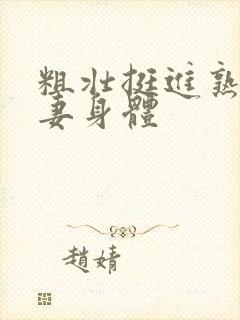 粗壯挺進熟
妻身體
趙婧